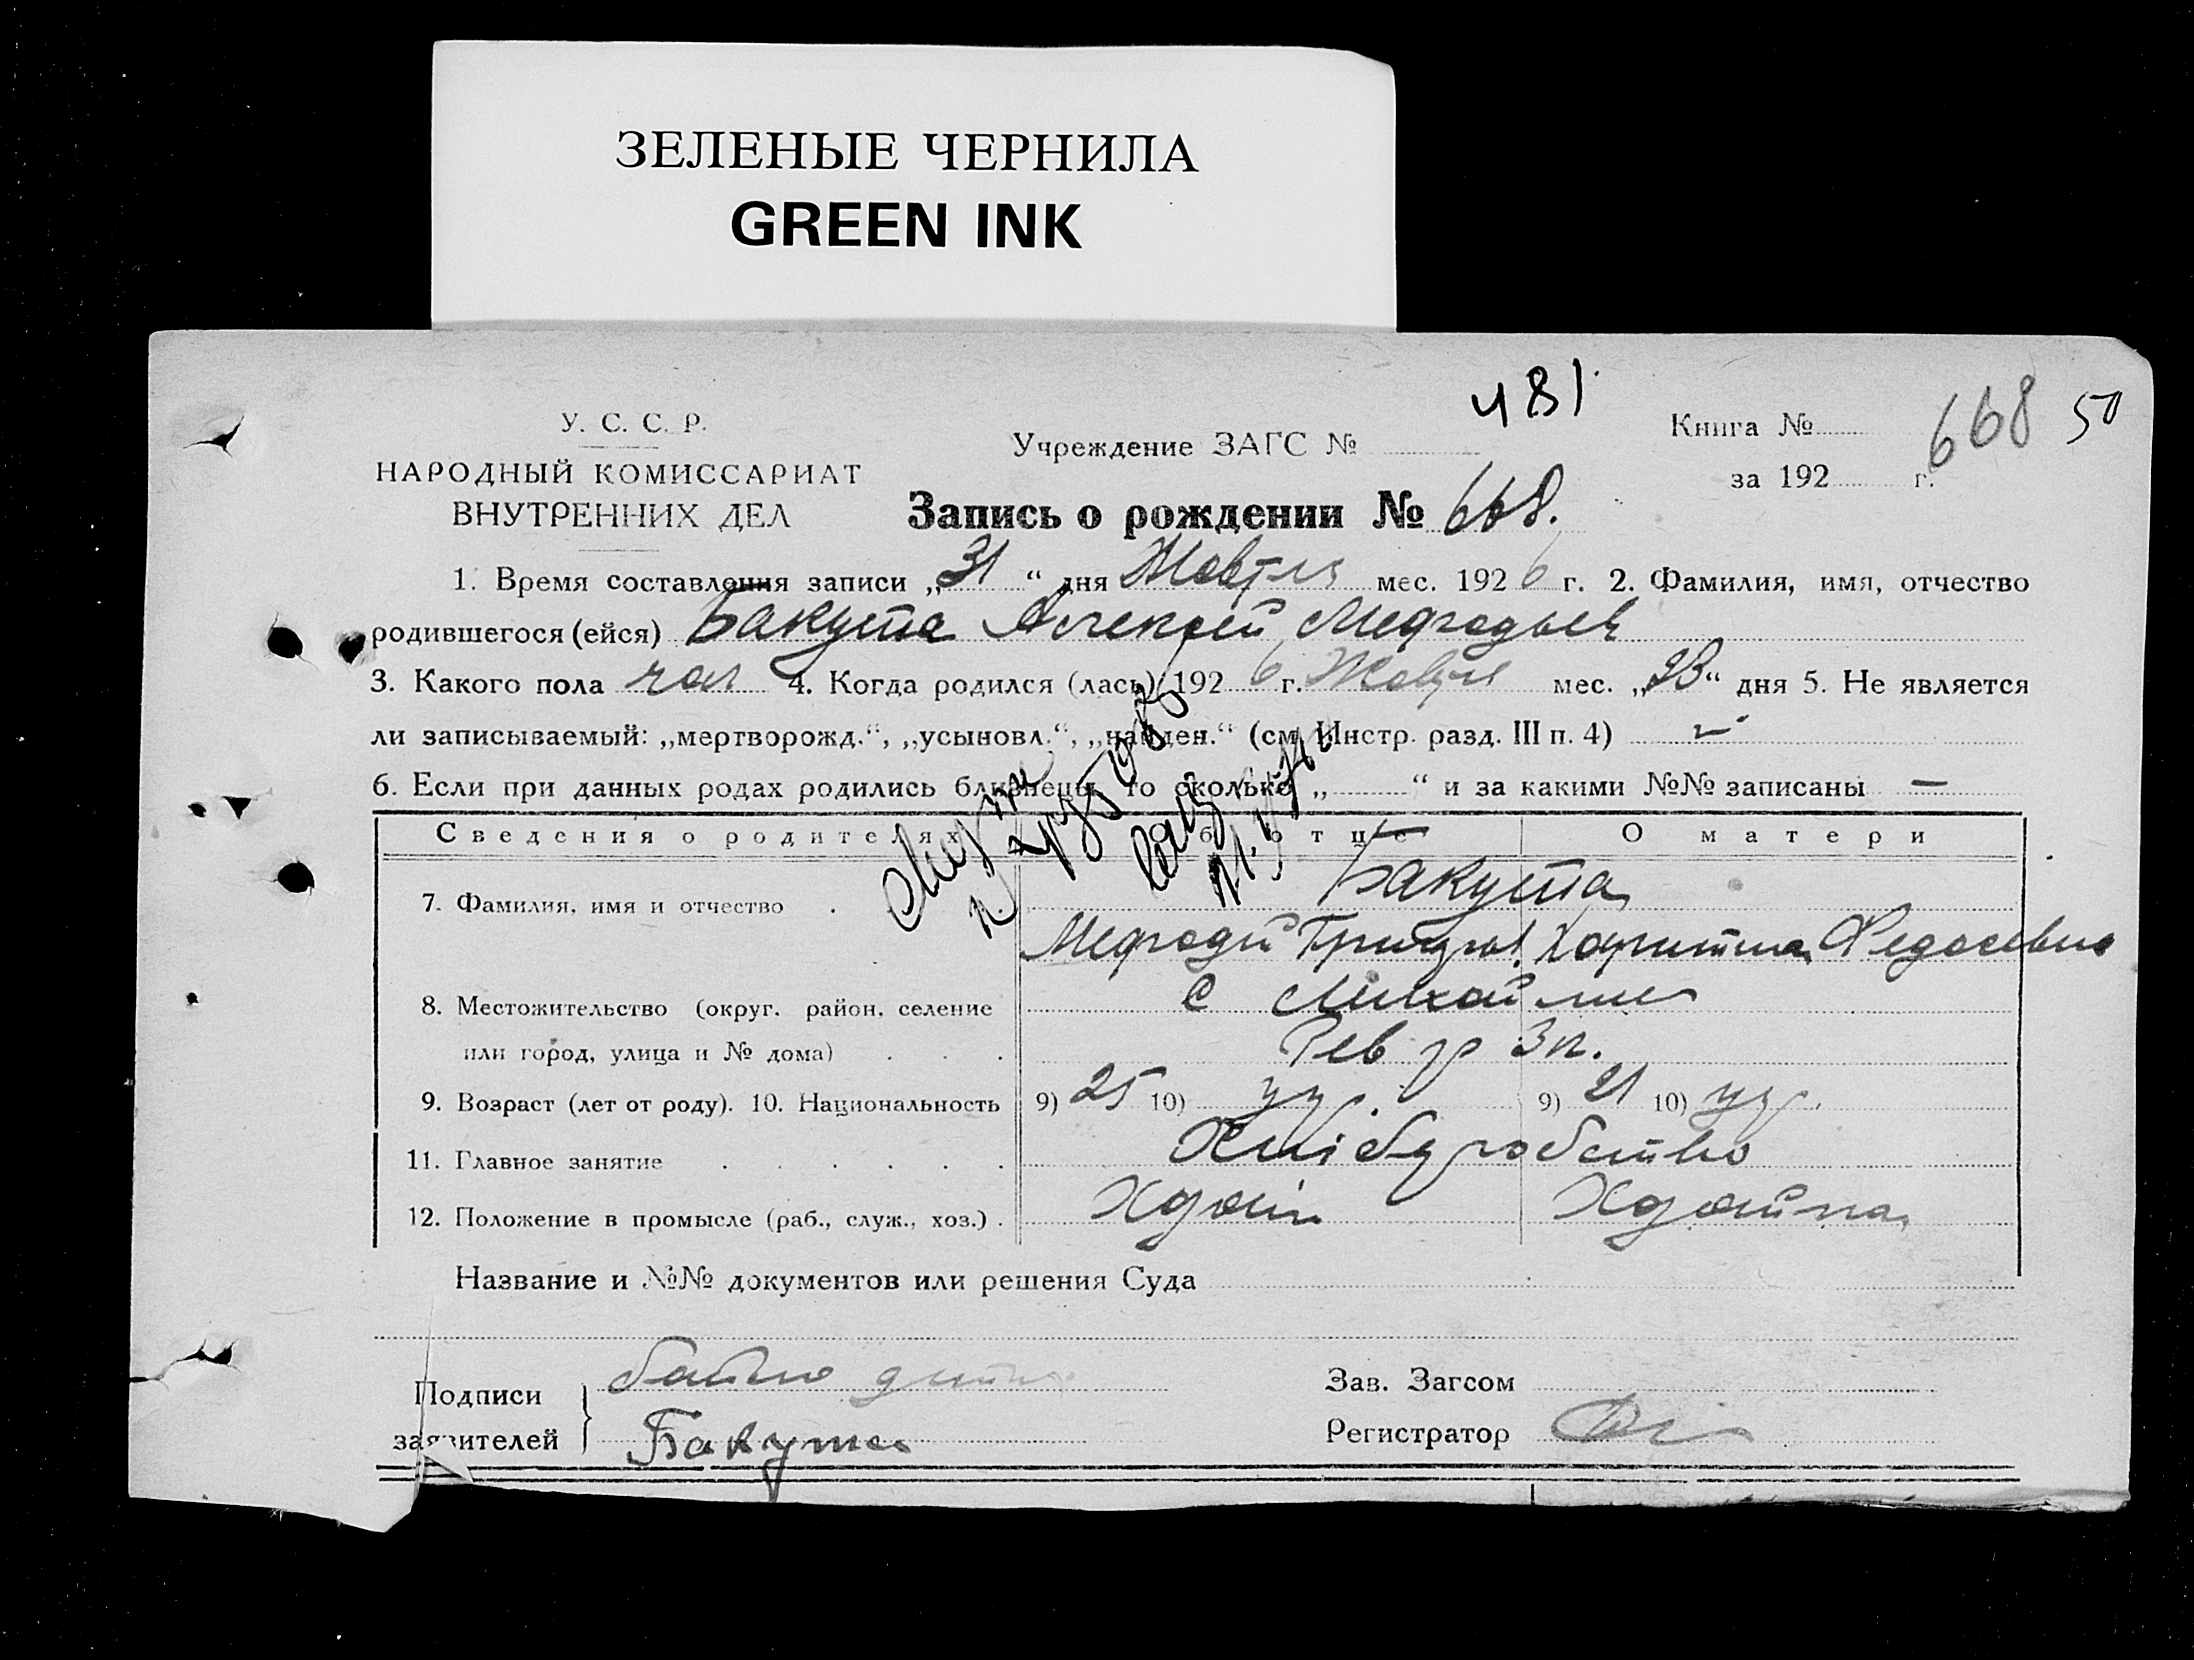 ЗЕЛЕНЫЕ ЧЕРНИЛА
GREEN INK
481
668 50
У. С. С. Р.
НАРОДНЫЙ КОМИССАРИАТ
ВНУТРЕННИХ ДЕЛ
Учреждение ЗАГС №
Книга №
за 192 г.
Запись о рождении № 668.
1. Время составления записи „31“ дня Жовтня мес. 1926 г. 2. Фамилия, имя, отчество
родившегося (ейся) Бакута Алексей Мефодьев
3. Какого пола чол 4. Когда родился (лась) 1926 г. Жовтня мес. „23“ дня 5. Не является
ли записываемый: „мертворожд.“, „усыновл.“, „найден.“ (см. Инстр. разд. III п. 4)
6. Если при данных родах родились близнецы, то сколько „ “ и за какими №№ записаны —
Сведения о родителях Об отце О матери
7. Фамилия, имя и отчество Бакута
Мефодій Григор. Харитина Федосевна
8. Местожительство (округ, район, селение С Михайлик
или город, улица и № дома) Рев 3п.
9. Возраст (лет от роду). 10. Национальность 9) 25 10) укр. 9) 21 10) укр.
11. Главное занятие Хліборобство
12. Положение в промысле (раб., служ., хоз.)
Название и №№ документов или решения Суда
Подписи заявителей } батько
Бакута
Зав. Загсом
Регистратор